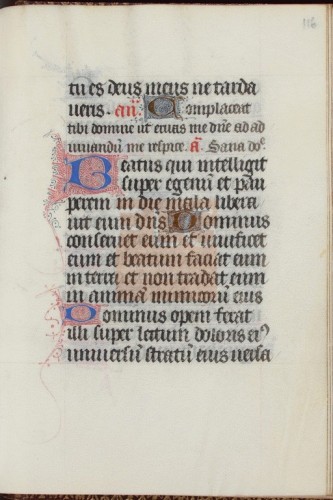 116
tu es deus meus ne tarda
veris. añ. Complaceat
tibi domine ut eruas me dñe ad ad
iuuandũ me respice. a. Sana dõ.
Beatus qui intelligit
super egenũ et pau
perem in die mala libera
uit eum dñs Dominus
conseruet eum et uiuificet
eum et beatum faciat eum
in terra et non tradat eum
in animã inimicorũ eius
Dominus opem ferat
illi super lectum doloris eiꝰ
uniuersũ stratũ eius uersa